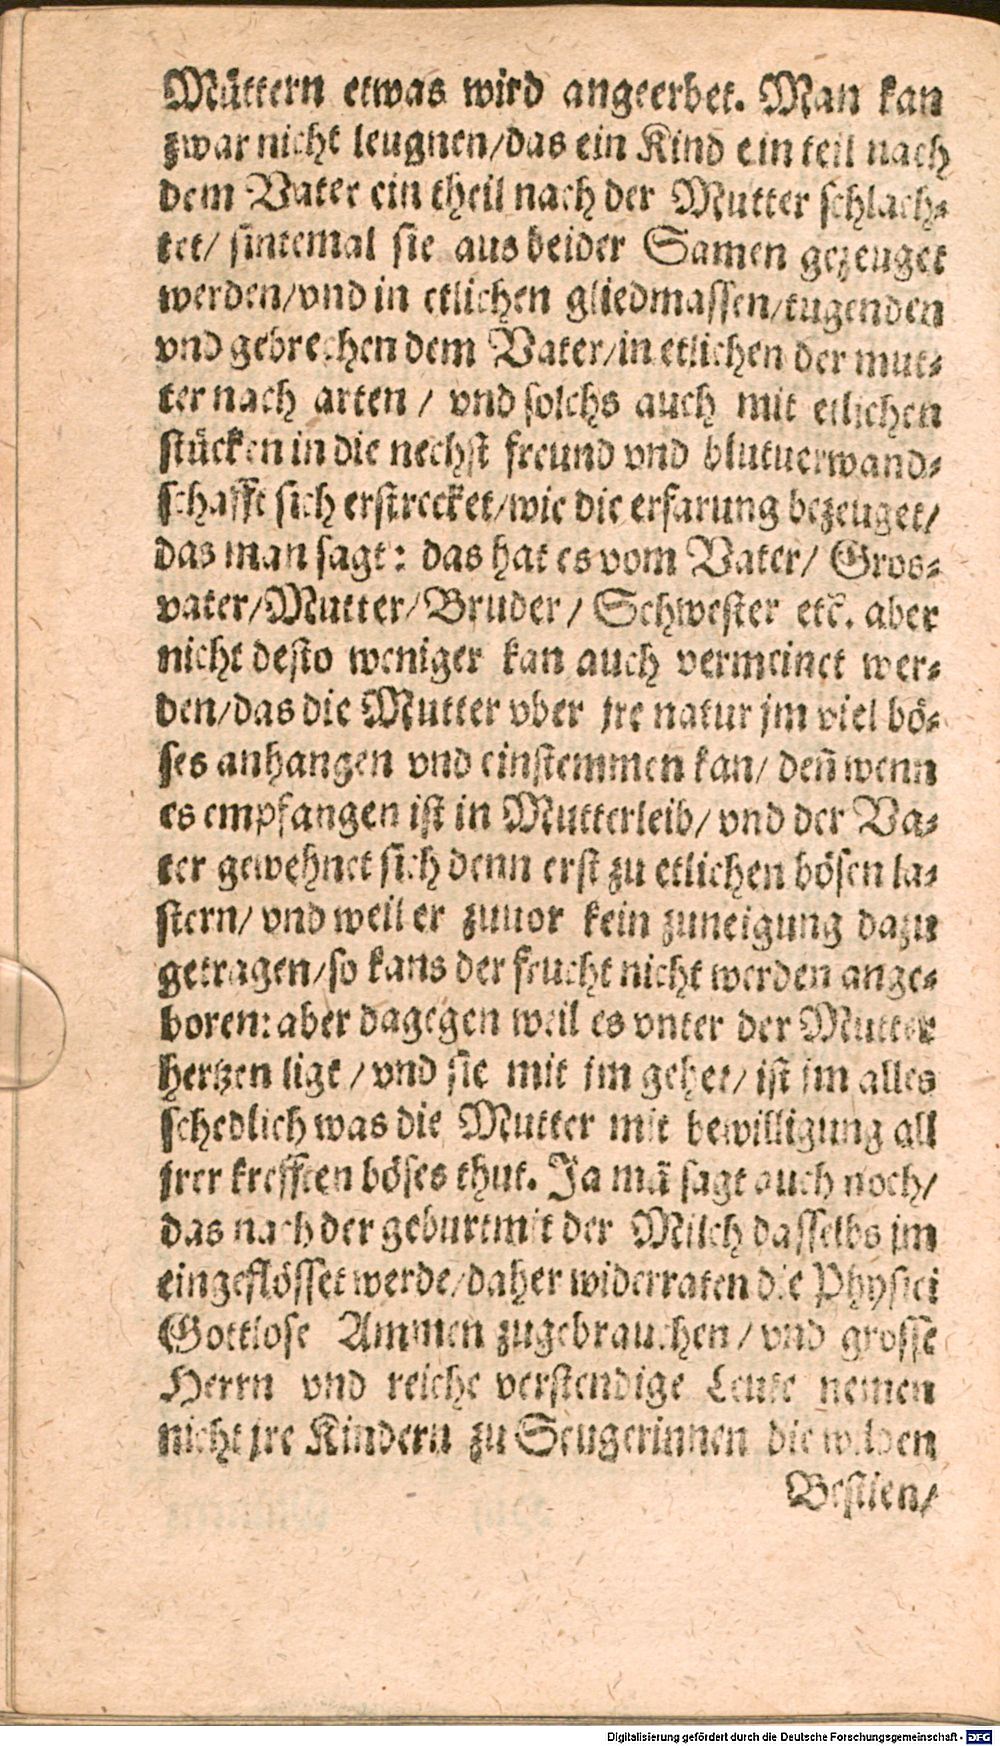 Müttern etwas wird angeerbet. Man kan
zwar nicht leugnen/das ein Kind ein teil nach
dem Vater ein theil nach der Mutter schlach⸗
tet/ sintemal sie aus beider Samen gezeuget
werden/vnd in etlichen gliedmassen/tugenden
vnd gebrechen dem Vater/in etlichen der mut⸗
ter nach arten / vnd solchs auch mit etlichen
stücken in die nechst freund vnd blutuerwand⸗
schafft sich erstrecket/wie die erfarung bezeuget/
das man sagt: das hat es vom Vater/ Gros⸗
vater/Mutter/Bruder/ Schwester etc̃. aber
nicht desto weniger kan auch vermeinet wer⸗
den/das die Mutter vber jre natur jm viel bö⸗
ses anhangen vnd einstemmen kan/ deñ wenn
es empfangen ist in Mutterleib/ vnd der Va⸗
ter gewehnet sich denn erst zu etlichen bösen la⸗
stern/ vnd weil er zuuor kein zuneigung dazu
getragen/so kans der frucht nicht werden ange⸗
boren: aber dagegen weil es vnter der Mutter
hertzen ligt / vnd sie mit jm gehet/ ist jm alles
schedlich was die Mutter mit bewilligung all
jrer krefften böses thut. Ja mã sagt auch noch/
das nach der geburt mit der Milch dasselbs jm
eingeflösset werde/daher widerraten die Physici
Gottlose Ammen zugebrauchen / vnd grosse
Herrn vnd reiche verstendige Leute nemen
nicht jre Kindern zu Seugerinnen die wilden
Bestien/
Digitalisierung gefördert durch die Deutsche Forschungsgemeinschaft - DFG